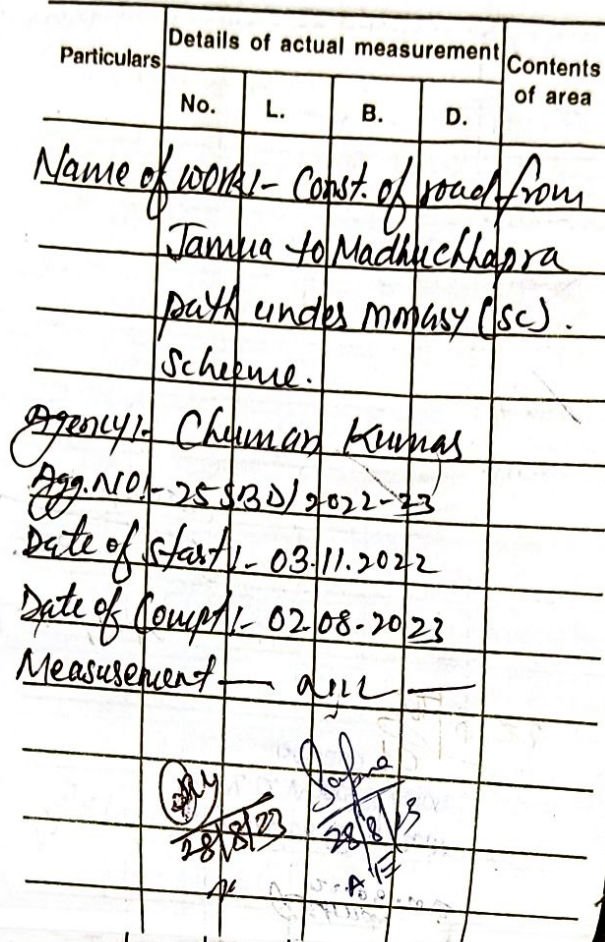 Particulars Details of actual measurement Contents of area
No. L. B. D.
Name of work:- Const. of road from
Jamua to Madhuchhapra
path under mmgsy (SC).
Scheme.
Agency:- Chuman Kumar
Agg. NO:- 25 SBD/2022-23
Date of start:- 03.11.2022
Date of Compt:- 02.08.2023
Measurement —
28/8/23 28/8/23